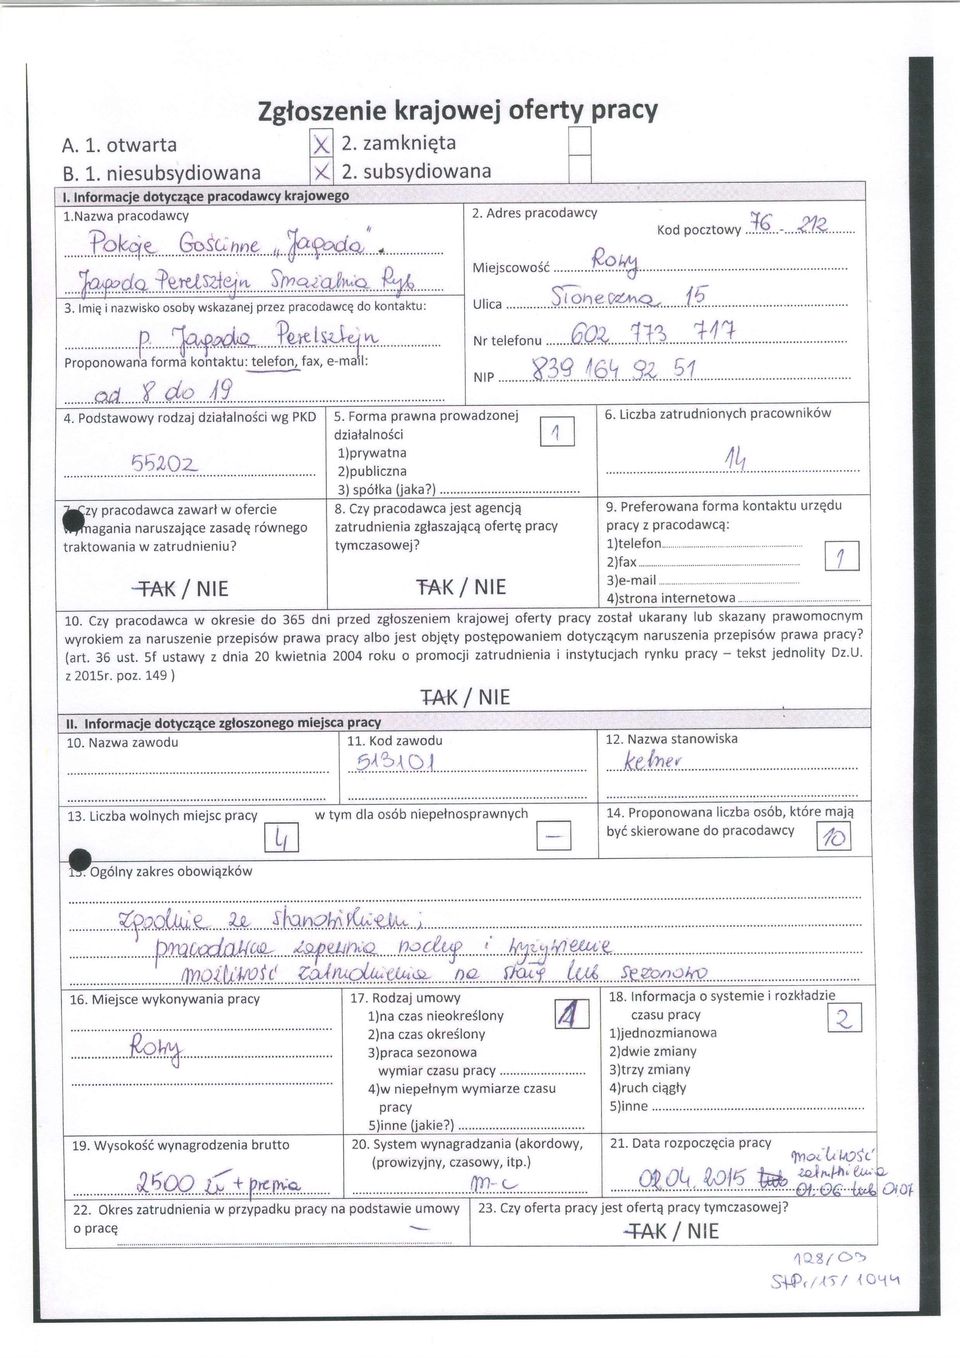 Zgłoszenie krajowej oferty pracy
A. 1. otwarta X 2. zamknięta
B. 1. niesubsydiowana X 2. subsydiowana
I. Informacje dotyczące pracodawcy krajowego
1.Nazwa pracodawcy
Pokoje Gościnne „Jagoda”
Jagoda Perelsztejn Smażalnia Ryb
2. Adres pracodawcy
Kod pocztowy 76 - 212
Miejscowość Rowy
Ulica Słoneczna 15
Nr telefonu 602 773 717
NIP 839 164 92 51
3. Imię i nazwisko osoby wskazanej przez pracodawcę do kontaktu:
p. Jagoda Perelsztejn
Proponowana forma kontaktu: telefon, fax, e-mail:
od 8 do 19
4. Podstawowy rodzaj działalności wg PKD
5520Z
5. Forma prawna prowadzonej
działalności 1
1)prywatna
2)publiczna
3) spółka (jaka?)
6. Liczba zatrudnionych pracowników
14
7. Czy pracodawca zawarł w ofercie
wymagania naruszające zasadę równego
traktowania w zatrudnieniu?
TAK / NIE
8. Czy pracodawca jest agencją
zatrudnienia zgłaszającą ofertę pracy
tymczasowej?
TAK / NIE
9. Preferowana forma kontaktu urzędu
pracy z pracodawcą:
1)telefon
2)fax 1
3)e-mail
4)strona internetowa
10. Czy pracodawca w okresie do 365 dni przed zgłoszeniem krajowej oferty pracy został ukarany lub skazany prawomocnym
wyrokiem za naruszenie przepisów prawa pracy albo jest objęty postępowaniem dotyczącym naruszenia przepisów prawa pracy?
(art. 36 ust. 5f ustawy z dnia 20 kwietnia 2004 roku o promocji zatrudnienia i instytucjach rynku pracy – tekst jednolity Dz.U.
z 2015r. poz. 149 )
TAK / NIE
II. Informacje dotyczące zgłoszonego miejsca pracy
10. Nazwa zawodu
11. Kod zawodu
513101
12. Nazwa stanowiska
kelner
13. Liczba wolnych miejsc pracy 4 w tym dla osób niepełnosprawnych —
14. Proponowana liczba osób, które mają
być skierowane do pracodawcy 10
15. Ogólny zakres obowiązków
Zgodnie ze stanowiskiem ;
pracodawca zapewnia nocleg i wyżywienie
możliwość zatrudnienia na stałe lub sezonowo
16. Miejsce wykonywania pracy
Rowy
17. Rodzaj umowy
1)na czas nieokreślony 1
2)na czas określony
3)praca sezonowa
wymiar czasu pracy
4)w niepełnym wymiarze czasu
pracy
5)inne (jakie?)
18. Informacja o systemie i rozkładzie
czasu pracy 2
1)jednozmianowa
2)dwie zmiany
3)trzy zmiany
4)ruch ciągły
5)inne
19. Wysokość wynagrodzenia brutto
2500 zł + premia
20. System wynagradzania (akordowy,
(prowizyjny, czasowy, itp.)
m-c
21. Data rozpoczęcia pracy
możliwość
zatrudnienia
02.04.2015 lub 01.06 lub 01.07
22. Okres zatrudnienia w przypadku pracy na podstawie umowy
o pracę —
23. Czy oferta pracy jest ofertą pracy tymczasowej?
TAK / NIE
128/03
StPr/15/1044